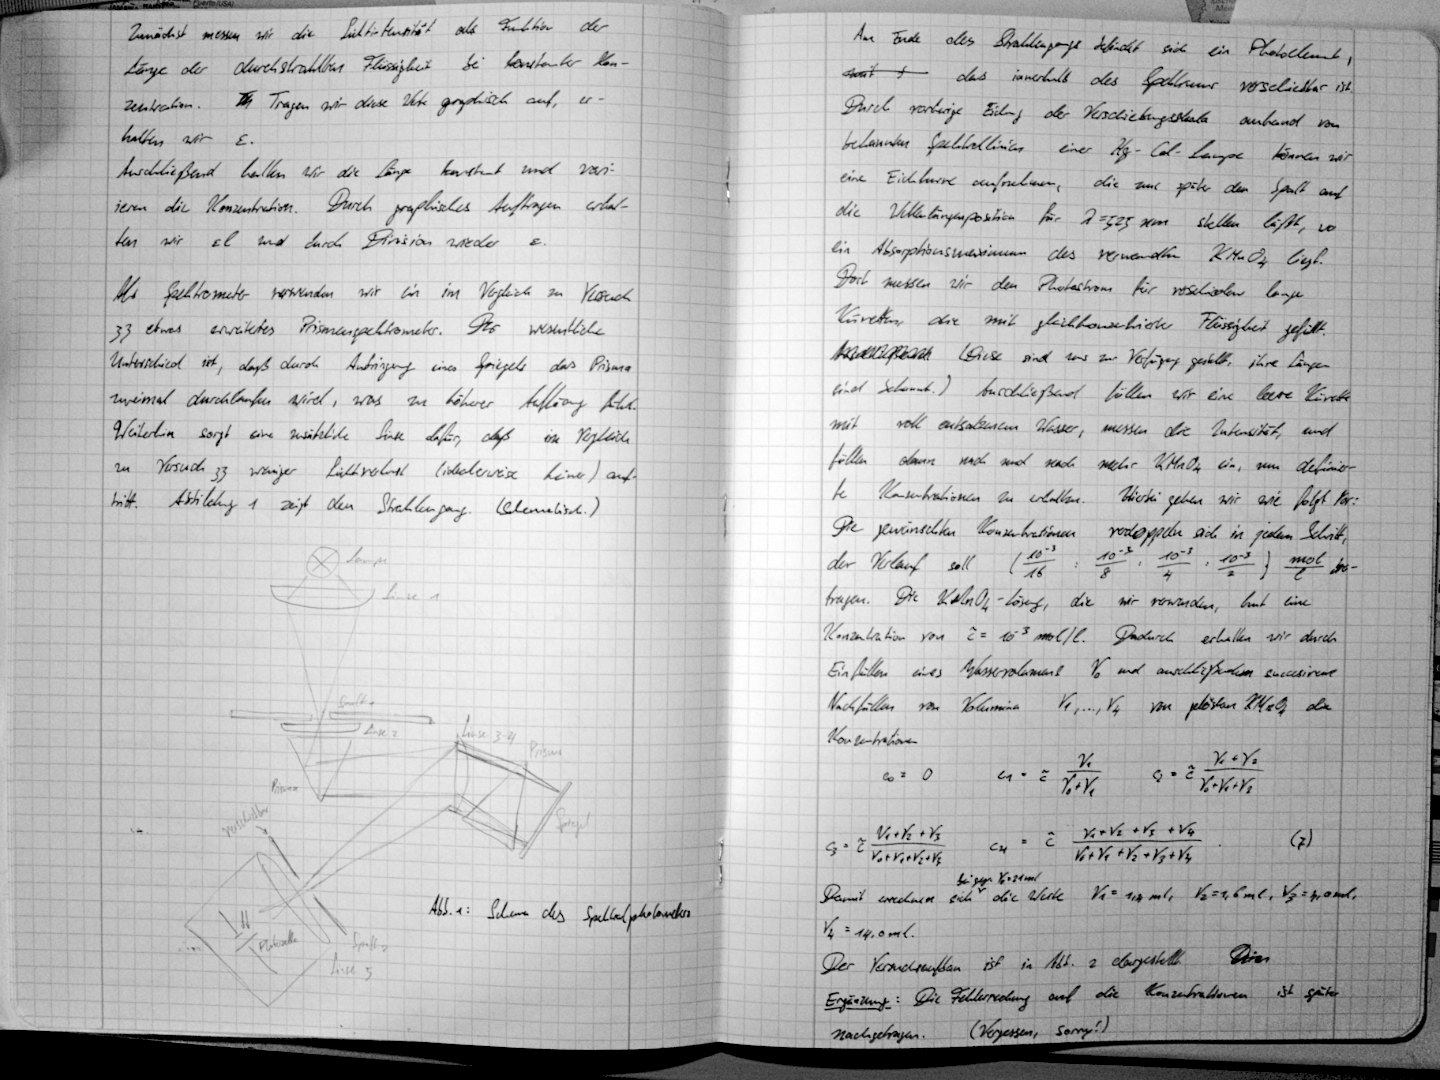 Zunächst messen wir die Lichtintensität als Funktion der
Länge der durchstrahlten Flüssigkeit bei konstanter Kon-
zentration. Tragen wir diese Werte graphisch auf, er-
halten wir ε.
Anschließend halten wir die Länge konstant und vari-
ieren die Konzentration. Durch graphisches Auftragen erhal-
ten wir εl und durch Division wieder ε.
Als Spektrometer verwenden wir ein im Vergleich zu Versuch
33 etwas erweitertes Prismenspektrometer. Der wesentliche
Unterschied ist, daß durch Anbringung eines Spiegels das Prisma
zweimal durchlaufen wird, was zu höherer Auflösung führt.
Weiterhin sorgt eine zusätzliche Linse dafür, daß im Vergleich
zu Versuch 33 weniger Lichtverlust (idealerweise keiner) auf-
tritt. Abbildung 1 zeigt den Strahlengang. (Schematisch.)
Lampe
Linse 1
Spalt 1
Linse 2
Linse 3-4
Prisma
Prisma
Spiegel
verschiebbar
Photozelle
Spalt 2
Linse 5
Abb. 1: Schema des Spektralphotometers
Am Ende des Strahlengangs befindet sich ein Photoelement,
das innerhalb des Spektrums verschiebbar ist.
Durch vorherige Eichung der Verschiebungsskala anhand von
bekannten Spektrallinien einer Hg-Cd-Lampe können wir
eine Eichkurve aufnehmen, die uns später den Spalt auf
die Wellenlängenposition für λ=525 nm stellen läßt, wo
ein Absorptionsmaximum des verwendeten KMnO4 liegt.
Dort messen wir den Photostrom für verschieden lange
Küvetten, die mit gleichkonzentrierter Flüssigkeit gefüllt.
(Diese sind uns zur Verfügung gestellt, ihre Längen
sind bekannt.) Anschließend füllen wir eine leere Küvette
mit voll entsalztem Wasser, messen die Intensität, und
füllen dann nach und nach mehr KMnO4 ein, um definier-
te Konzentrationen zu erhalten. Hierbei gehen wir wie folgt vor:
Die gewünschten Konzentrationen verdoppeln sich in jedem Schritt,
der Verlauf soll (10⁻³/16 ; 10⁻³/8 ; 10⁻³/4 ; 10⁻³/2) mol/l be-
tragen. Die KMnO4-Lösung, die wir verwenden, hat eine
Konzentration von c̃ = 10⁻³ mol/l. Dadurch erhalten wir durch
Einfüllen eines Wasservolumens V₀ und anschließendem successivem
Nachfüllen von Volumina V₁,...,V₄ von gelöstem KMnO4 die
Konzentrationen
c₀ = 0 c₁ = c̃ V₁/(V₀+V₁) c₂ = c̃ (V₁+V₂)/(V₀+V₁+V₂)
c₃ = c̃ (V₁+V₂+V₃)/(V₀+V₁+V₂+V₃) c₄ = c̃ (V₁+V₂+V₃+V₄)/(V₀+V₁+V₂+V₃+V₄) . (7)
bei gegeb. V₀=21ml
Damit errechnen sich die Werte V₁=1,4 ml, V₂=1,6 ml, V₃=4,0 ml,
V₄ = 14,0 ml.
Der Versuchsaufbau ist in Abb. 2 dargestellt.
Ergänzung: Die Fehlerrechnung auf die Konzentrationen ist später
nachgetragen. (Vergessen, sorry!)